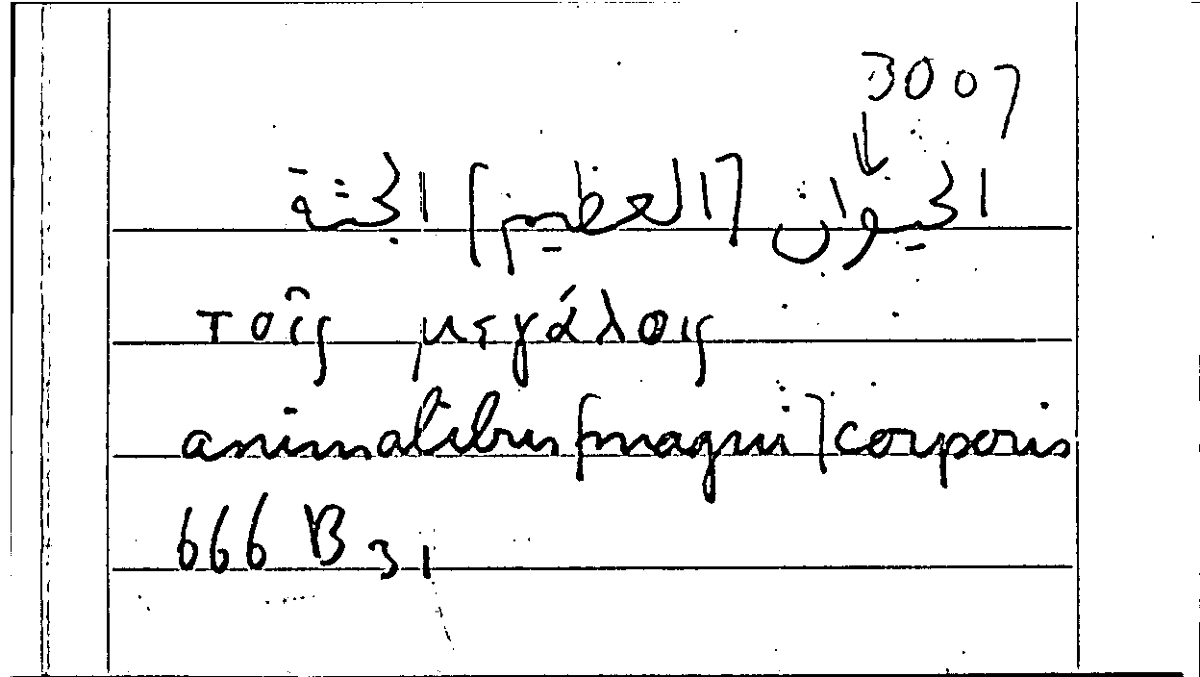 3007
↓
الحيوان [العظيم] الجثة
τοῖς μεγάλοις
animalibus [magni] corporis
666 B 31